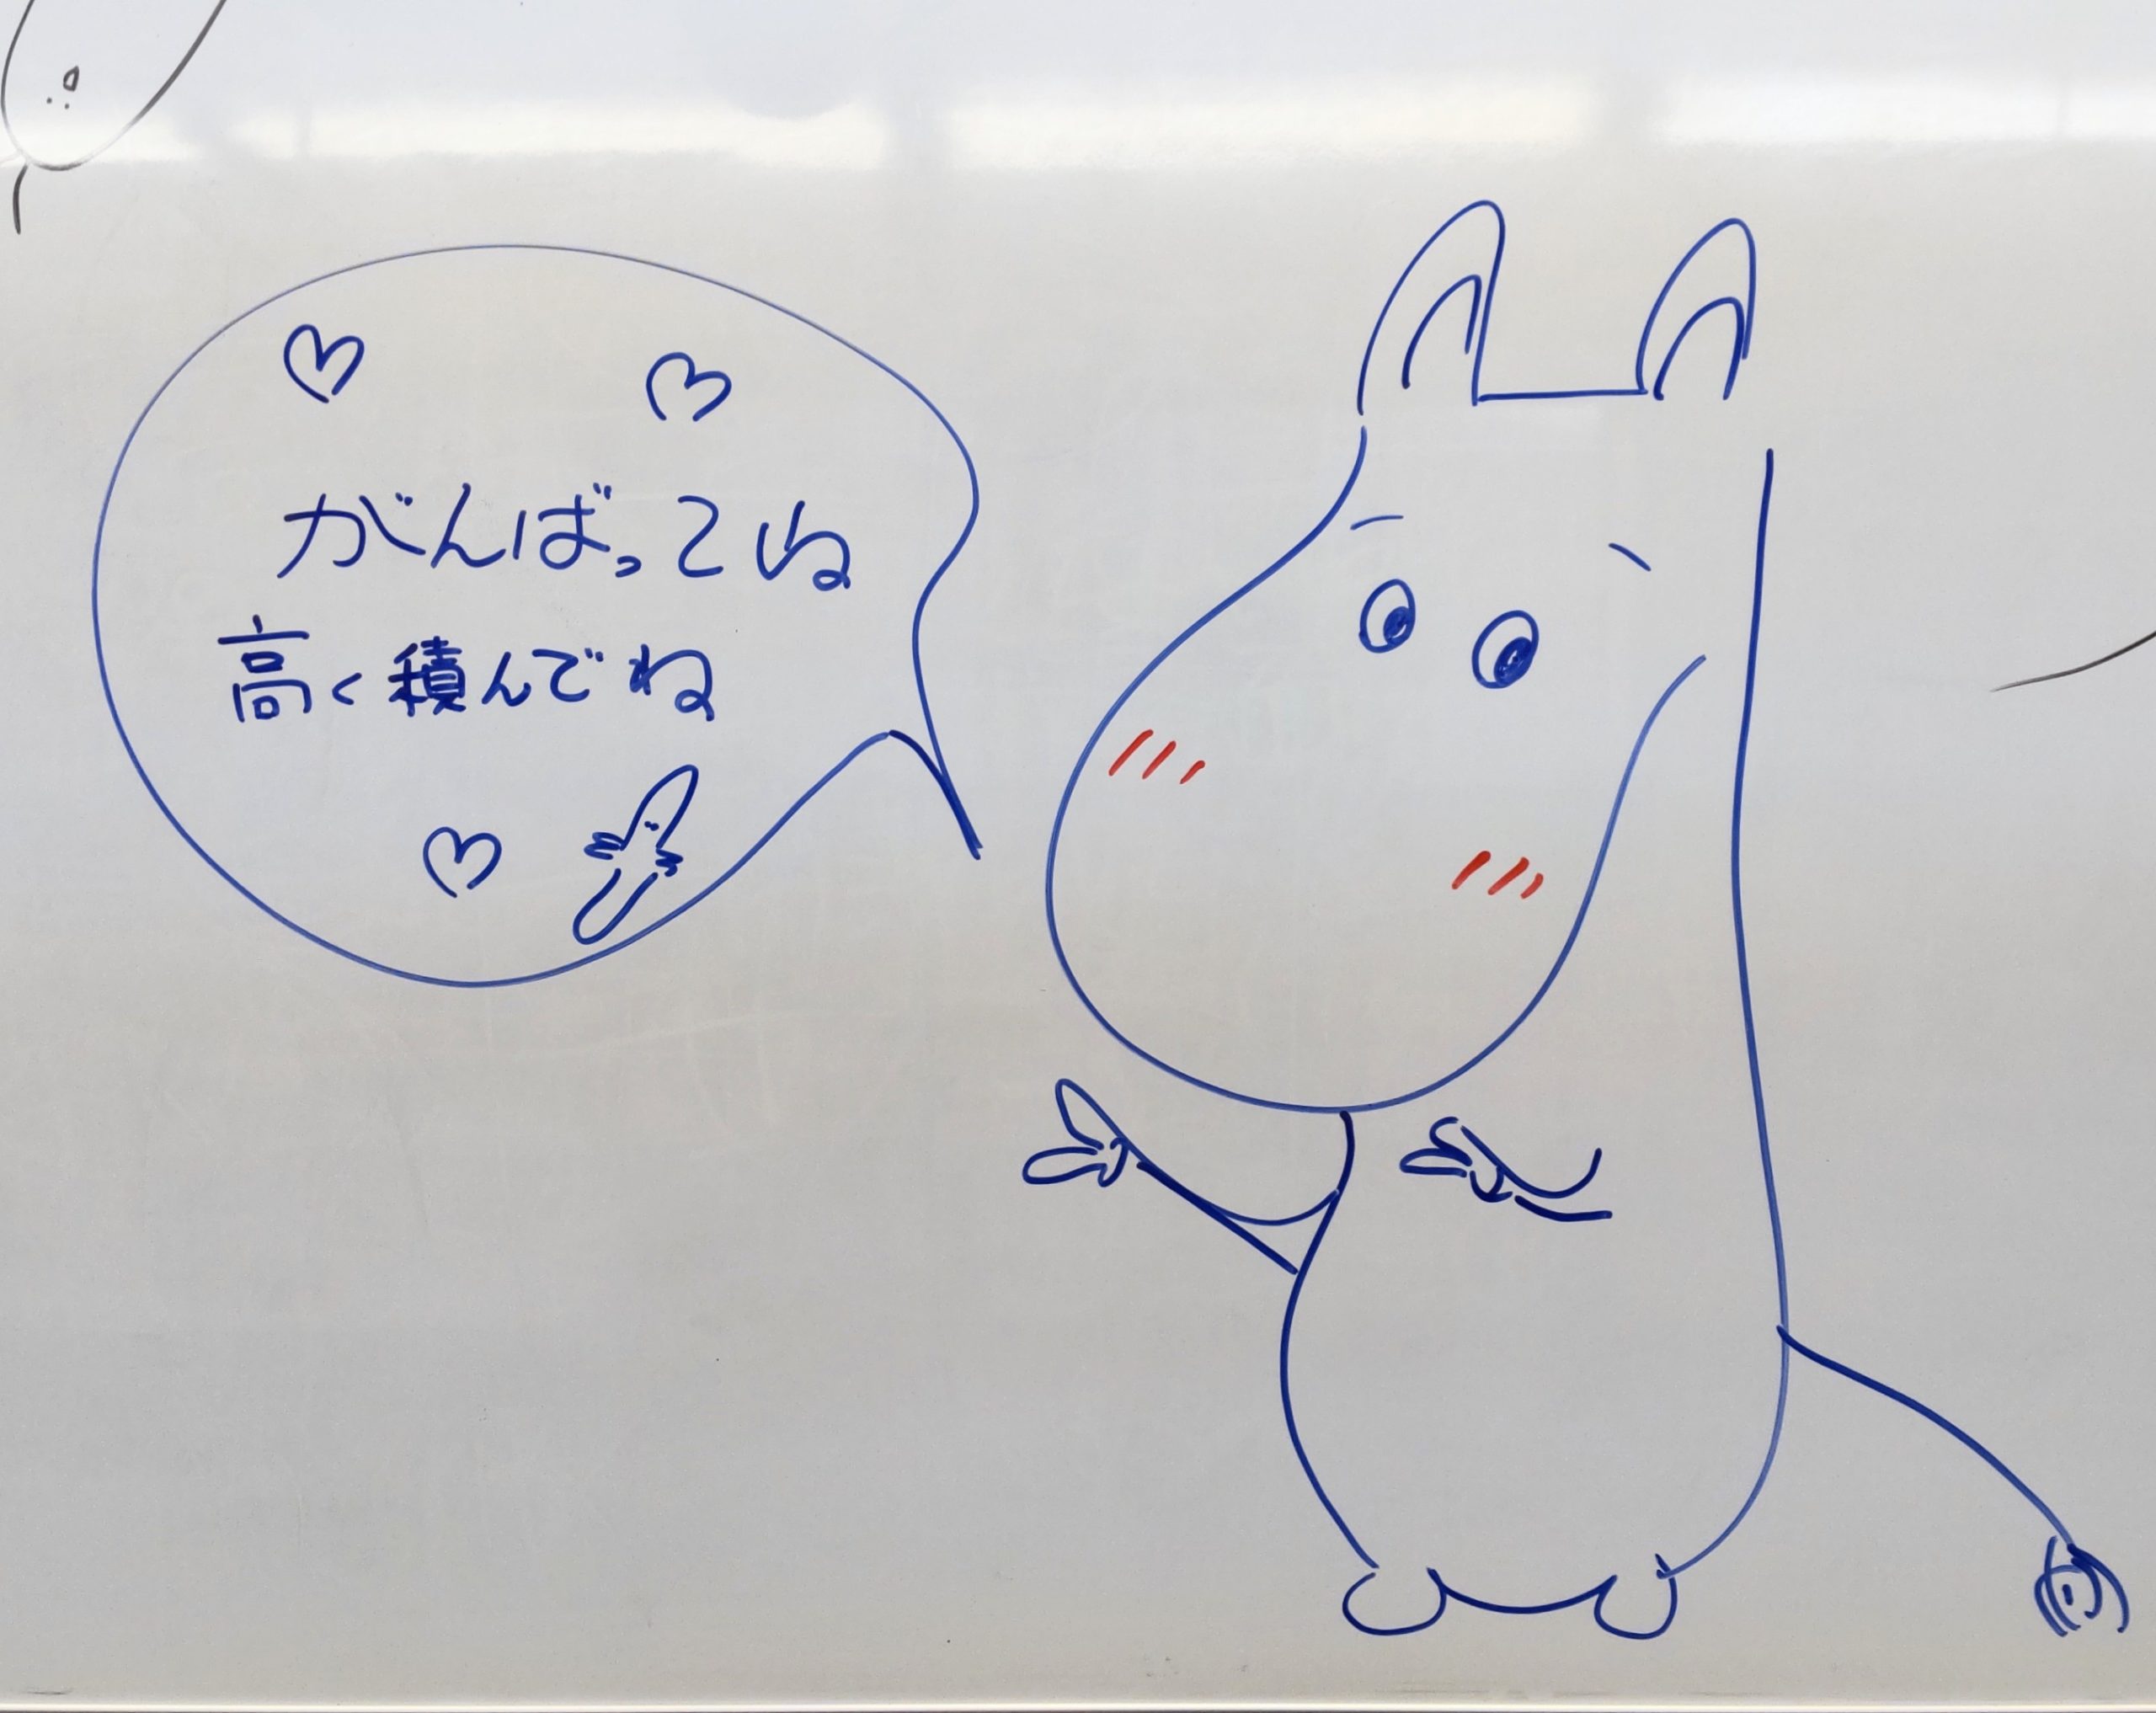 がんばってね
高く積んでね